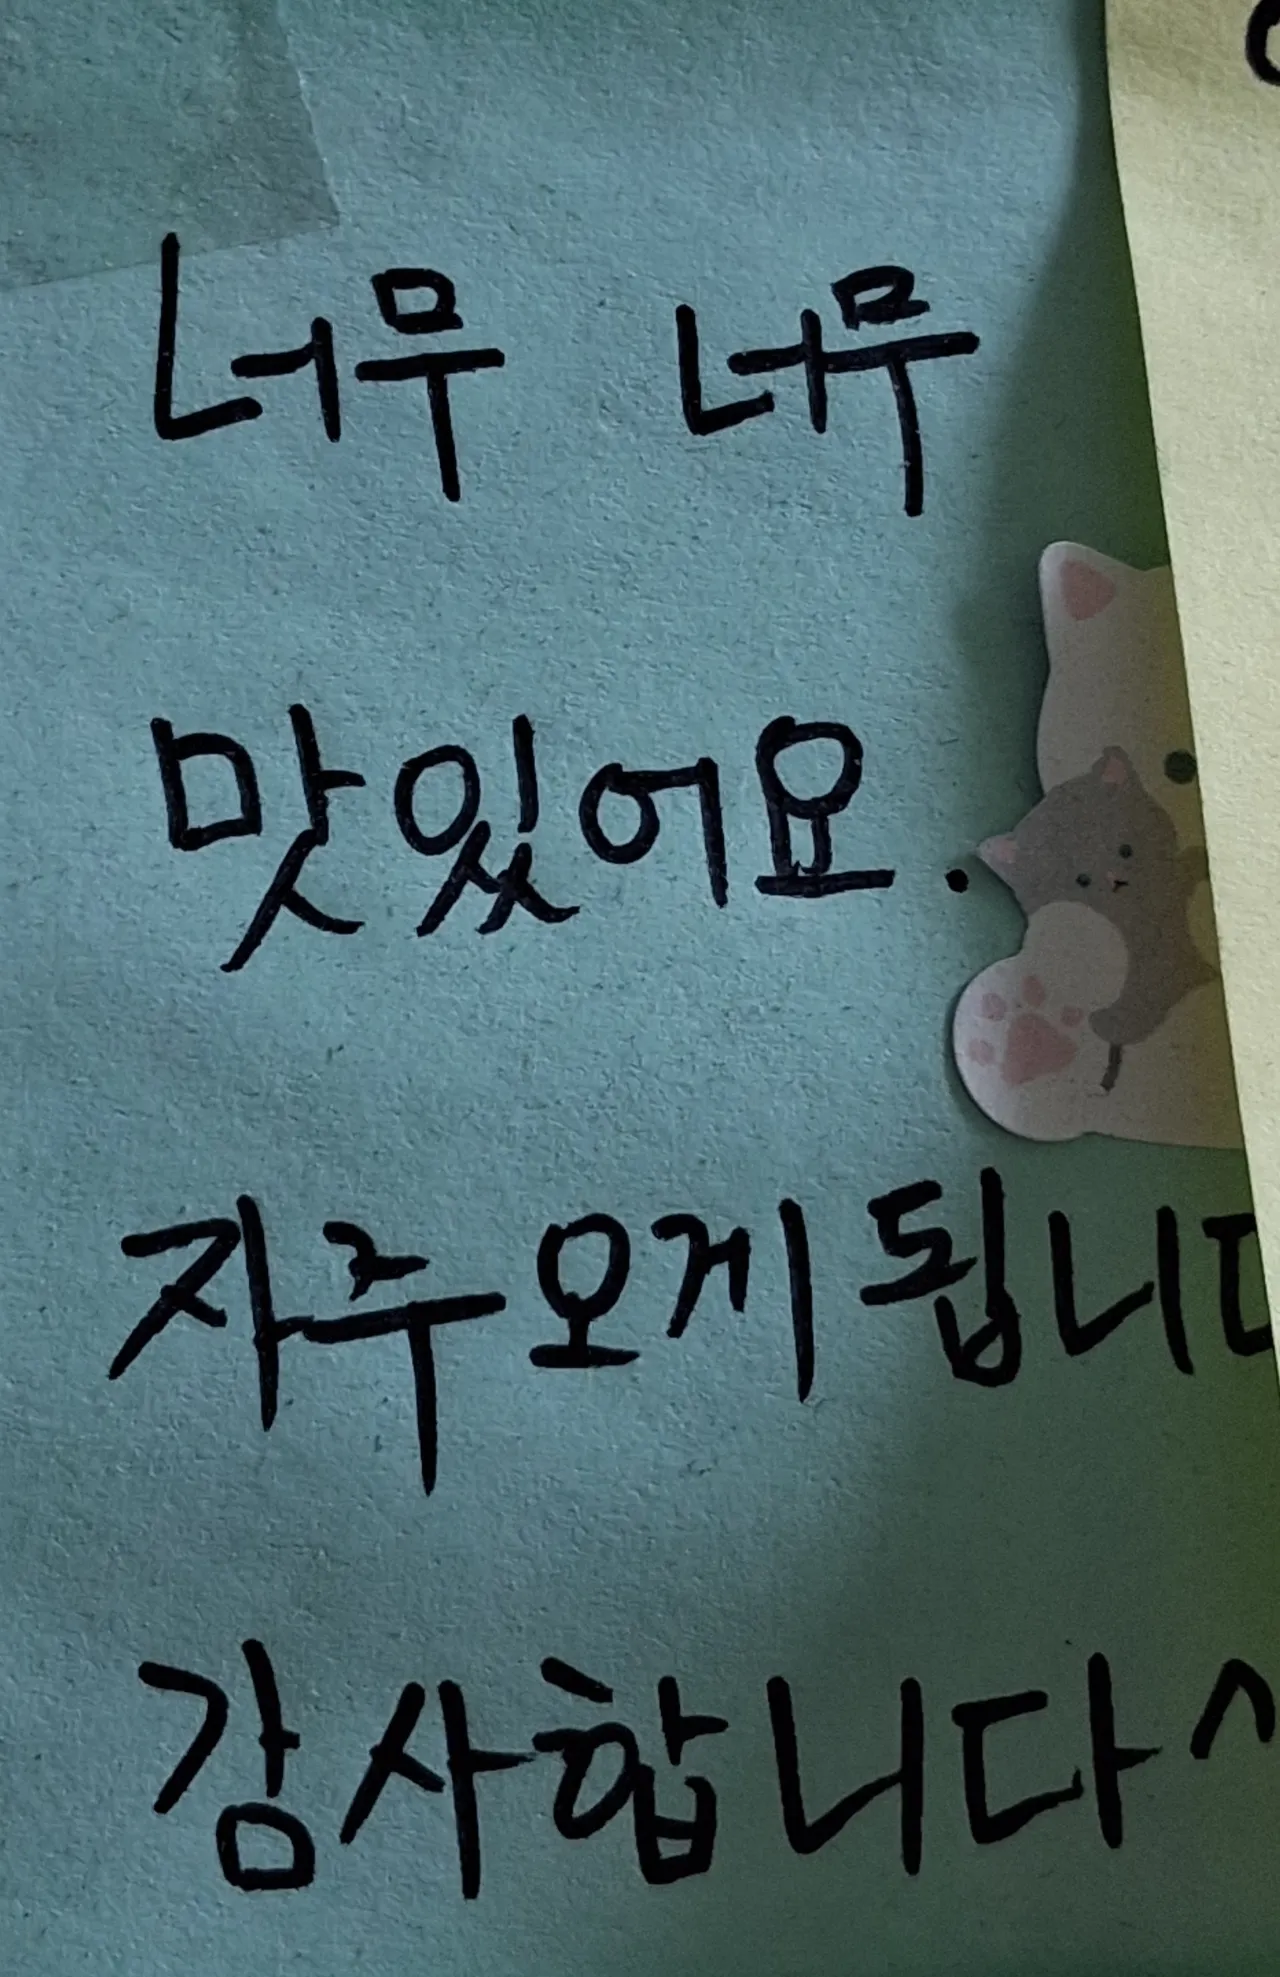 너무 너무
맛있어요.
자주오게 됩니다
감사합니다^